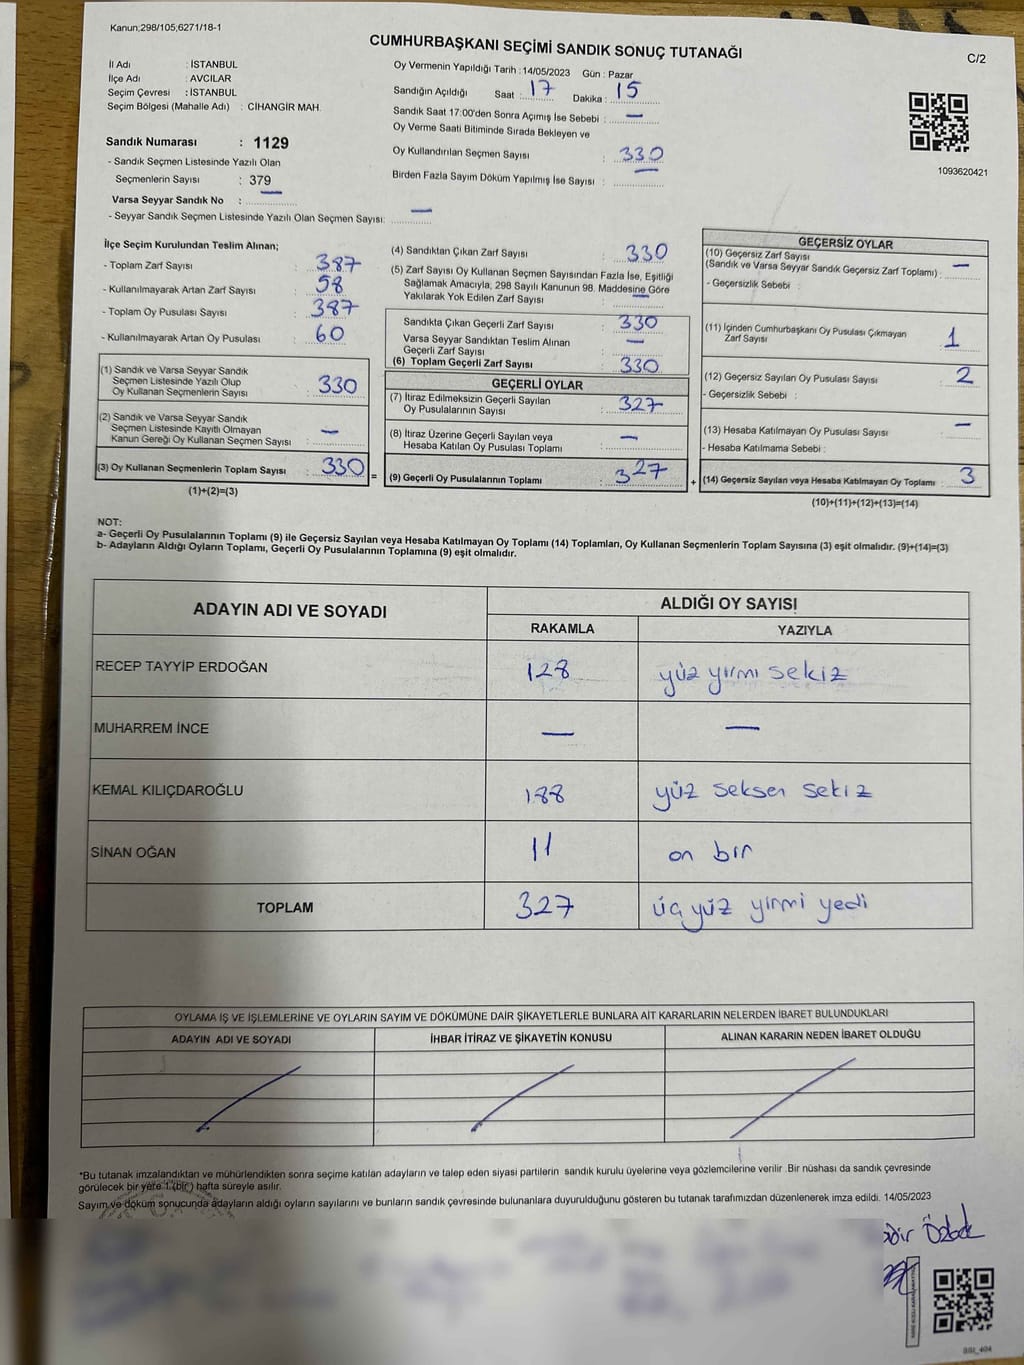 Kanun;298/105;6271/18-1
CUMHURBAŞKANI SEÇİMİ SANDIK SONUÇ TUTANAĞI
C/2
İl Adı : İSTANBUL
İlçe Adı : AVCILAR
Seçim Çevresi : İSTANBUL
Seçim Bölgesi (Mahalle Adı) : CIHANGIR MAH.
Sandık Numarası : 1129
- Sandık Seçmen Listesinde Yazılı Olan
Seçmenlerin Sayısı : 379
Varsa Seyyar Sandık No : —
- Seyyar Sandık Seçmen Listesinde Yazılı Olan Seçmen Sayısı: —
Oy Vermenin Yapıldığı Tarih : 14/05/2023 Gün : Pazar
Sandığın Açıldığı Saat : 17 Dakika : 15
Sandık Saat 17:00'den Sonra Açımış İse Sebebi : —
Oy Verme Saati Bitiminde Sırada Bekleyen ve
Oy Kullandırılan Seçmen Sayısı : 330
Birden Fazla Sayım Döküm Yapılmış İse Sayısı : —
1093620421
İlçe Seçim Kurulundan Teslim Alınan;
- Toplam Zarf Sayısı : 387
- Kullanılmayarak Artan Zarf Sayısı : 58
- Toplam Oy Pusulası Sayısı : 387
- Kullanılmayarak Artan Oy Pusulası : 60
(1) Sandık ve Varsa Seyyar Sandık
Seçmen Listesinde Yazılı Olup
Oy Kullanan Seçmenlerin Sayısı : 330
(2) Sandık ve Varsa Seyyar Sandık
Seçmen Listesinde Kayıtlı Olmayan
Kanun Gereği Oy Kullanan Seçmen Sayısı : —
(3) Oy Kullanan Seçmenlerin Toplam Sayısı : 330
(1)+(2)=(3)
(4) Sandıktan Çıkan Zarf Sayısı : 330
(5) Zarf Sayısı Oy Kullanan Seçmen Sayısından Fazla İse, Eşitliği
Sağlamak Amacıyla, 298 Sayılı Kanunun 98. Maddesine Göre
Yakılarak Yok Edilen Zarf Sayısı : —
Sandıkta Çıkan Geçerli Zarf Sayısı : 330
Varsa Seyyar Sandıktan Teslim Alınan
Geçerli Zarf Sayısı : —
(6) Toplam Geçerli Zarf Sayısı : 330
GEÇERLİ OYLAR
(7) İtiraz Edilmeksizin Geçerli Sayılan
Oy Pusulalarının Sayısı : 327
(8) İtiraz Üzerine Geçerli Sayılan veya
Hesaba Katılan Oy Pusulası Toplamı : —
= (9) Geçerli Oy Pusulalarının Toplamı : 327 +
GEÇERSİZ OYLAR
(10) Geçersiz Zarf Sayısı
(Sandık ve Varsa Seyyar Sandık Geçersiz Zarf Toplamı) : —
- Geçersizlik Sebebi :
(11) İçinden Cumhurbaşkanı Oy Pusulası Çıkmayan
Zarf Sayısı : 1
(12) Geçersiz Sayılan Oy Pusulası Sayısı : 2
- Geçersizlik Sebebi :
(13) Hesaba Katılmayan Oy Pusulası Sayısı : —
- Hesaba Katılmama Sebebi :
(14) Geçersiz Sayılan veya Hesaba Katılmayan Oy Toplamı : 3
(10)+(11)+(12)+(13)=(14)
NOT:
a- Geçerli Oy Pusulalarının Toplamı (9) ile Geçersiz Sayılan veya Hesaba Katılmayan Oy Toplamı (14) Toplamları, Oy Kullanan Seçmenlerin Toplam Sayısına (3) eşit olmalıdır. (9)+(14)=(3)
b- Adayların Aldığı Oyların Toplamı, Geçerli Oy Pusulalarının Toplamına (9) eşit olmalıdır.
ADAYIN ADI VE SOYADI
ALDIĞI OY SAYISI
RAKAMLA YAZIYLA
RECEP TAYYİP ERDOĞAN 128 yüz yirmi sekiz
MUHARREM İNCE — —
KEMAL KILIÇDAROĞLU 188 yüz seksen sekiz
SİNAN OĞAN 11 on bir
TOPLAM 327 üç yüz yirmi yedi
OYLAMA İŞ VE İŞLEMLERİNE VE OYLARIN SAYIM VE DÖKÜMÜNE DAİR ŞİKAYETLERLE BUNLARA AİT KARARLARIN NELERDEN İBARET BULUNDUKLARI
ADAYIN ADI VE SOYADI İHBAR İTİRAZ VE ŞİKAYETİN KONUSU ALINAN KARARIN NEDEN İBARET OLDUĞU
*Bu tutanak imzalandıktan ve mühürlendikten sonra seçime katılan adayların ve talep eden siyasi partilerin sandık kurulu üyelerine veya gözlemcilerine verilir .Bir nüshası da sandık çevresinde
görülecek bir yere 1 (bir ) hafta süreyle asılır.
Sayım ve döküm sonucunda adayların aldığı oyların sayılarını ve bunların sandık çevresinde bulunanlara duyurulduğunu gösteren bu tutanak tarafımızdan düzenlenerek imza edildi. 14/05/2023